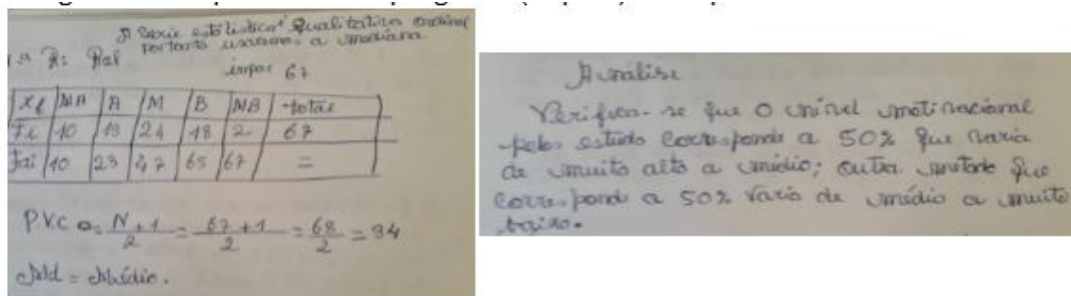 A serie estatistica é qualitativa ordinal
portanto usaremos a mediana
R: Ral
impar 67
Xi | MA | A | M | B | MB | total
Fi | 10 | 13 | 24 | 18 | 2 | 67
Fai | 10 | 23 | 47 | 65 | 67 | =
PVC = N+1/2 = 67+1/2 = 68/2 = 34
Md = Médio.
Análise
Verifica-se que o nível motivacional
pelos estudo corresponde a 50% que varia
de muito alto a médio; outra metade que
corresponde a 50% varia de médio a muito
baixo.